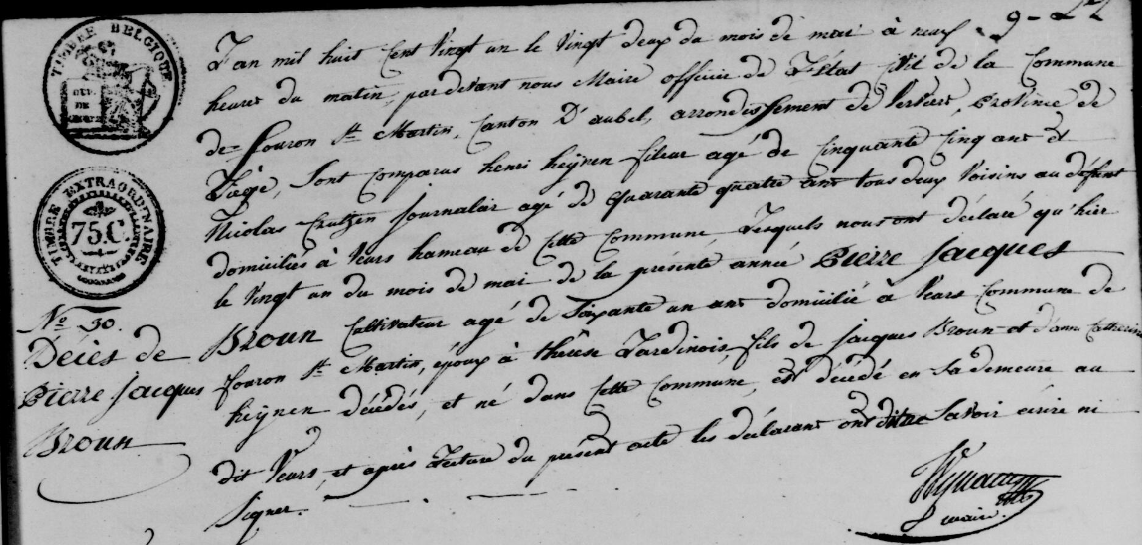 TIMBRE BELGIQUE
TIMBRE EXTRAORDINAIRE
75.C.
9-22
L'an mil huit Cent Vingt un le Vingt deux du mois de mai à neuf
heures du matin, par devant nous Maire officier de L'état Civil de la Commune
de fouron St Martin, Canton D'aubel, arrondissement de Verviers, Province de
Liège, Sont Comparus henri heÿnen fileur agé de Cinquante Cinq ans et
Nicolas Crutzen Journalier agé de quarante quatre ans tous deux Voisins au défunt
domiciliés à Veurs hameau de Cette Commune Lesquels nous ont déclaré qu'hier
le Vingt un du mois de mai de la présente année Pierre Jacques
Broun Cultivateur agé de Soixante un ans domicilié à Veurs Commune de
fouron St Martin, époux à thérèse Lardinois fils de Jacques Broun et d'anne Catherine
heÿnen décédés, et né dans Cette Commune, est décédé en Sa demeure au
dit Veurs, et après Lecture du présent acte les déclarant ont Savoir écrire ni
Signer.
No 30.
Décès de
Pierre Jacques
Broun
maire